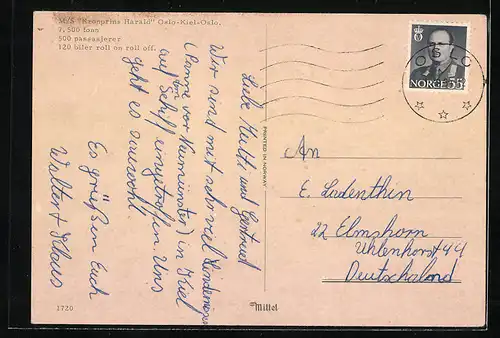 M/S "Kronprins Harald" Oslo-Kiel-Oslo.
7.500 tonn
500 passasjerer
120 biler roll on roll off.
Liebe Mutti und Gertrud
Wir sind mit sehr viel
(Panne vor Neumünster) in Kiel
auf Schiff eingetroffen Uns
geht es sauwohl!
Es grüßen Euch
Walter + Klaus
1720
PRINTED IN NORWAY
Mittet
OSLO
NORGE 55
An
E. Ladenthin
22 Elmshorn
Uhlenhorst 44
Deutschland